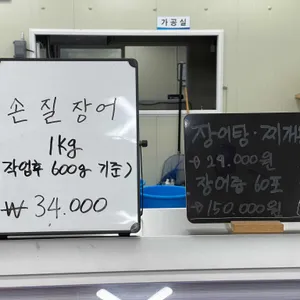 가공실
손질장어
1kg
작업후 600g 기준)
₩ 34.000
장어탕·찌개
₩ 29.000원
장어즙 60포
₩150.000원